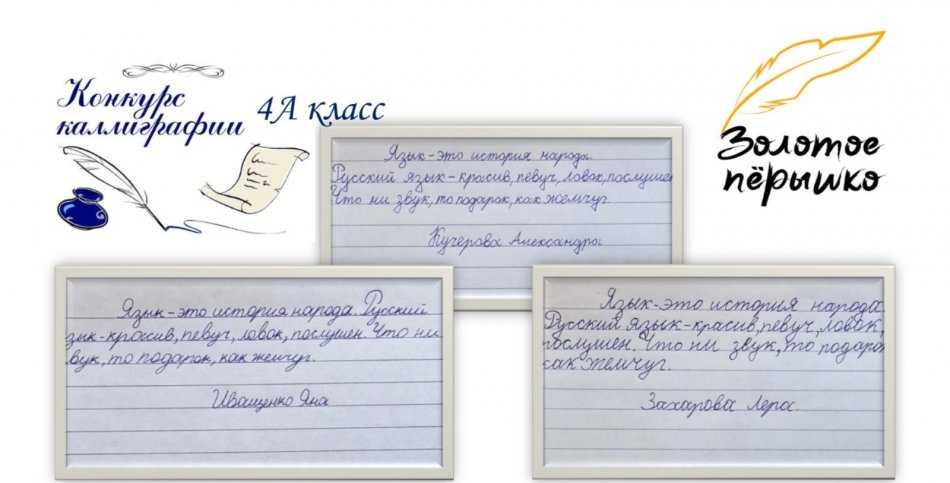 Конкурс
каллиграфии
4А класс
Золотое
пёрышко
Язык-это история народа.
Русский язык-красив, певуч, ловок, послушен
Что ни звук, то подарок, как жемчуг.
Кучерова Александра
Язык-это история народа. Русский
зык-красив, певуч, ловок, послушен. Что ни
вук, то подарок, как жемчуг.
Иващенко Яна
Язык-это история народа
Русский язык-красив, певуч, ловок,
послушен. Что ни звук, то подарок
как жемчуг.
Захарова Лера.